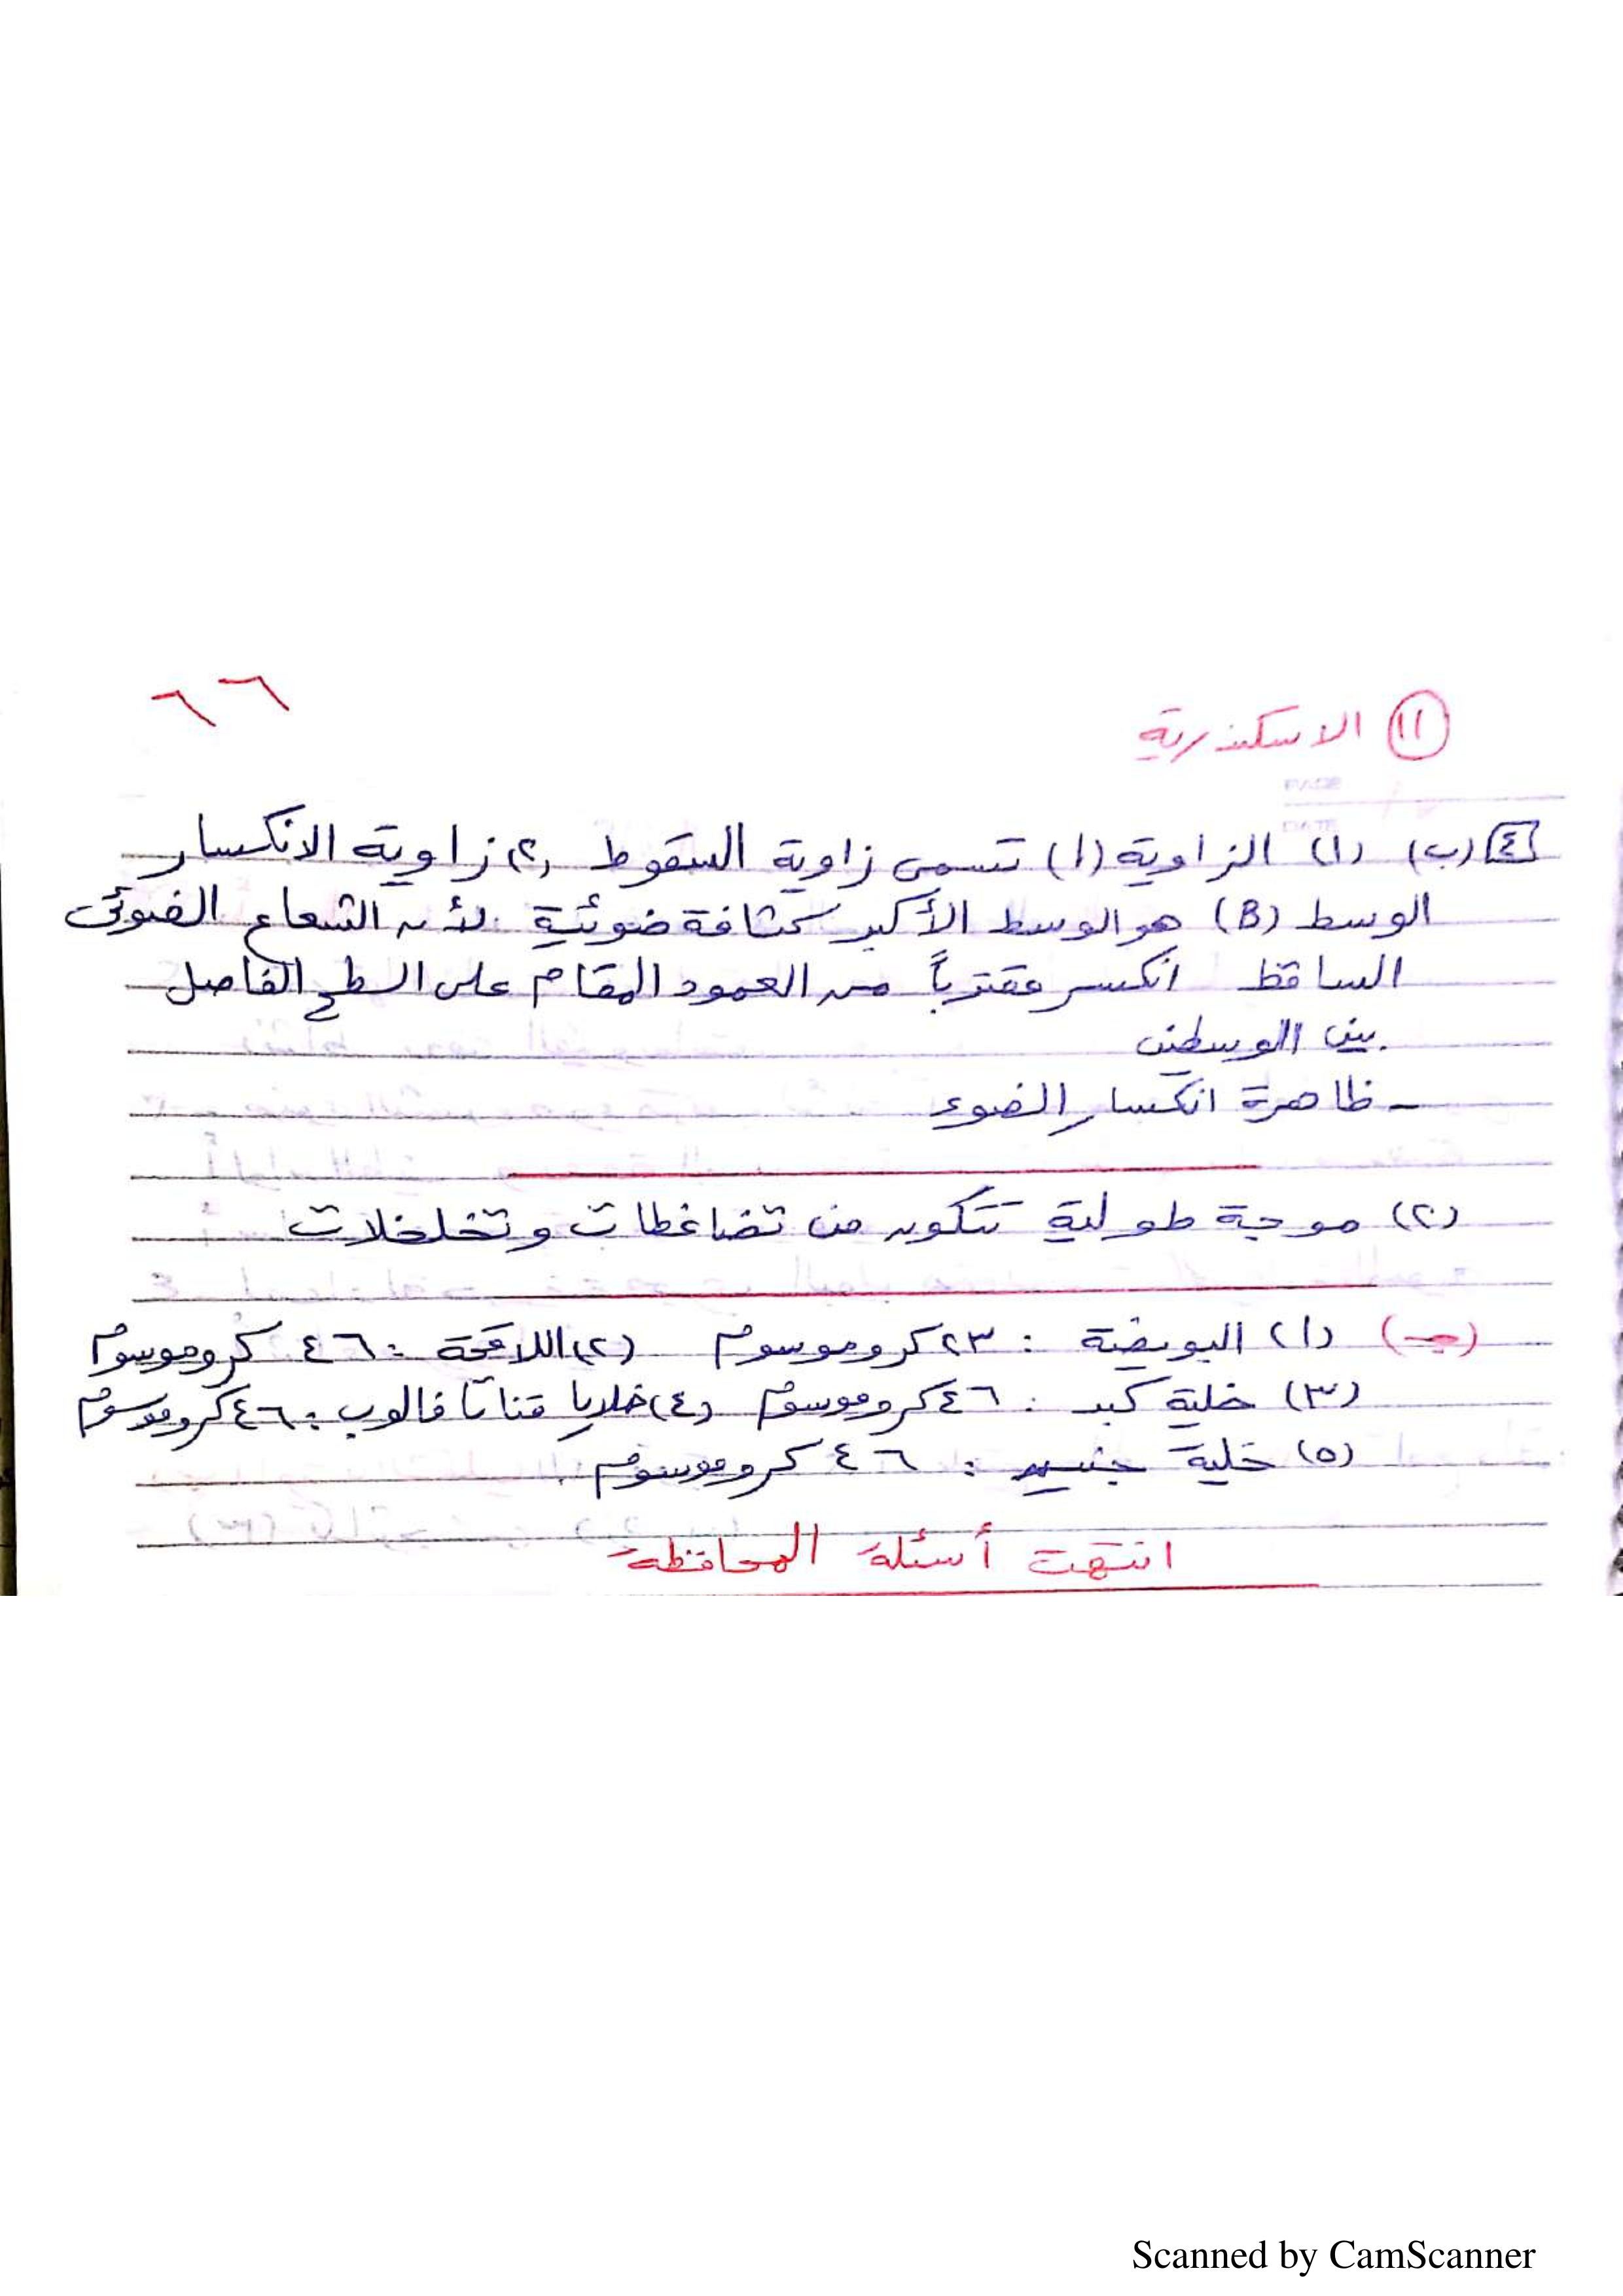 ٦٦
١١ الاسكندرية
٤ (ب) (١) الزاوية (١) تسمى زاوية السقوط ، (٢) زاوية الانكسار
الوسط (B) هو الوسط الأكبر كثافة ضوئية لأن الشعاع الضوئى
الساقط انكسر مقترباً من العمود المقام على السطح الفاصل
بين الوسطين
- ظاهرة انكسار الضوء
(٢) موجة طولية تتكون من تضاغطات وتخلخلات
(جـ) (١) البويضة : ٢٣ كروموسوم (٢) اللاقحة : ٤٦ كروموسوم
(٣) خلية كبد : ٤٦ كروموسوم (٤) خلايا قناتا فالوب : ٤٦ كروموسوم
(٥) خلية جنين : ٤٦ كروموسوم
انتهت أسئلة المحافظة
Scanned by CamScanner